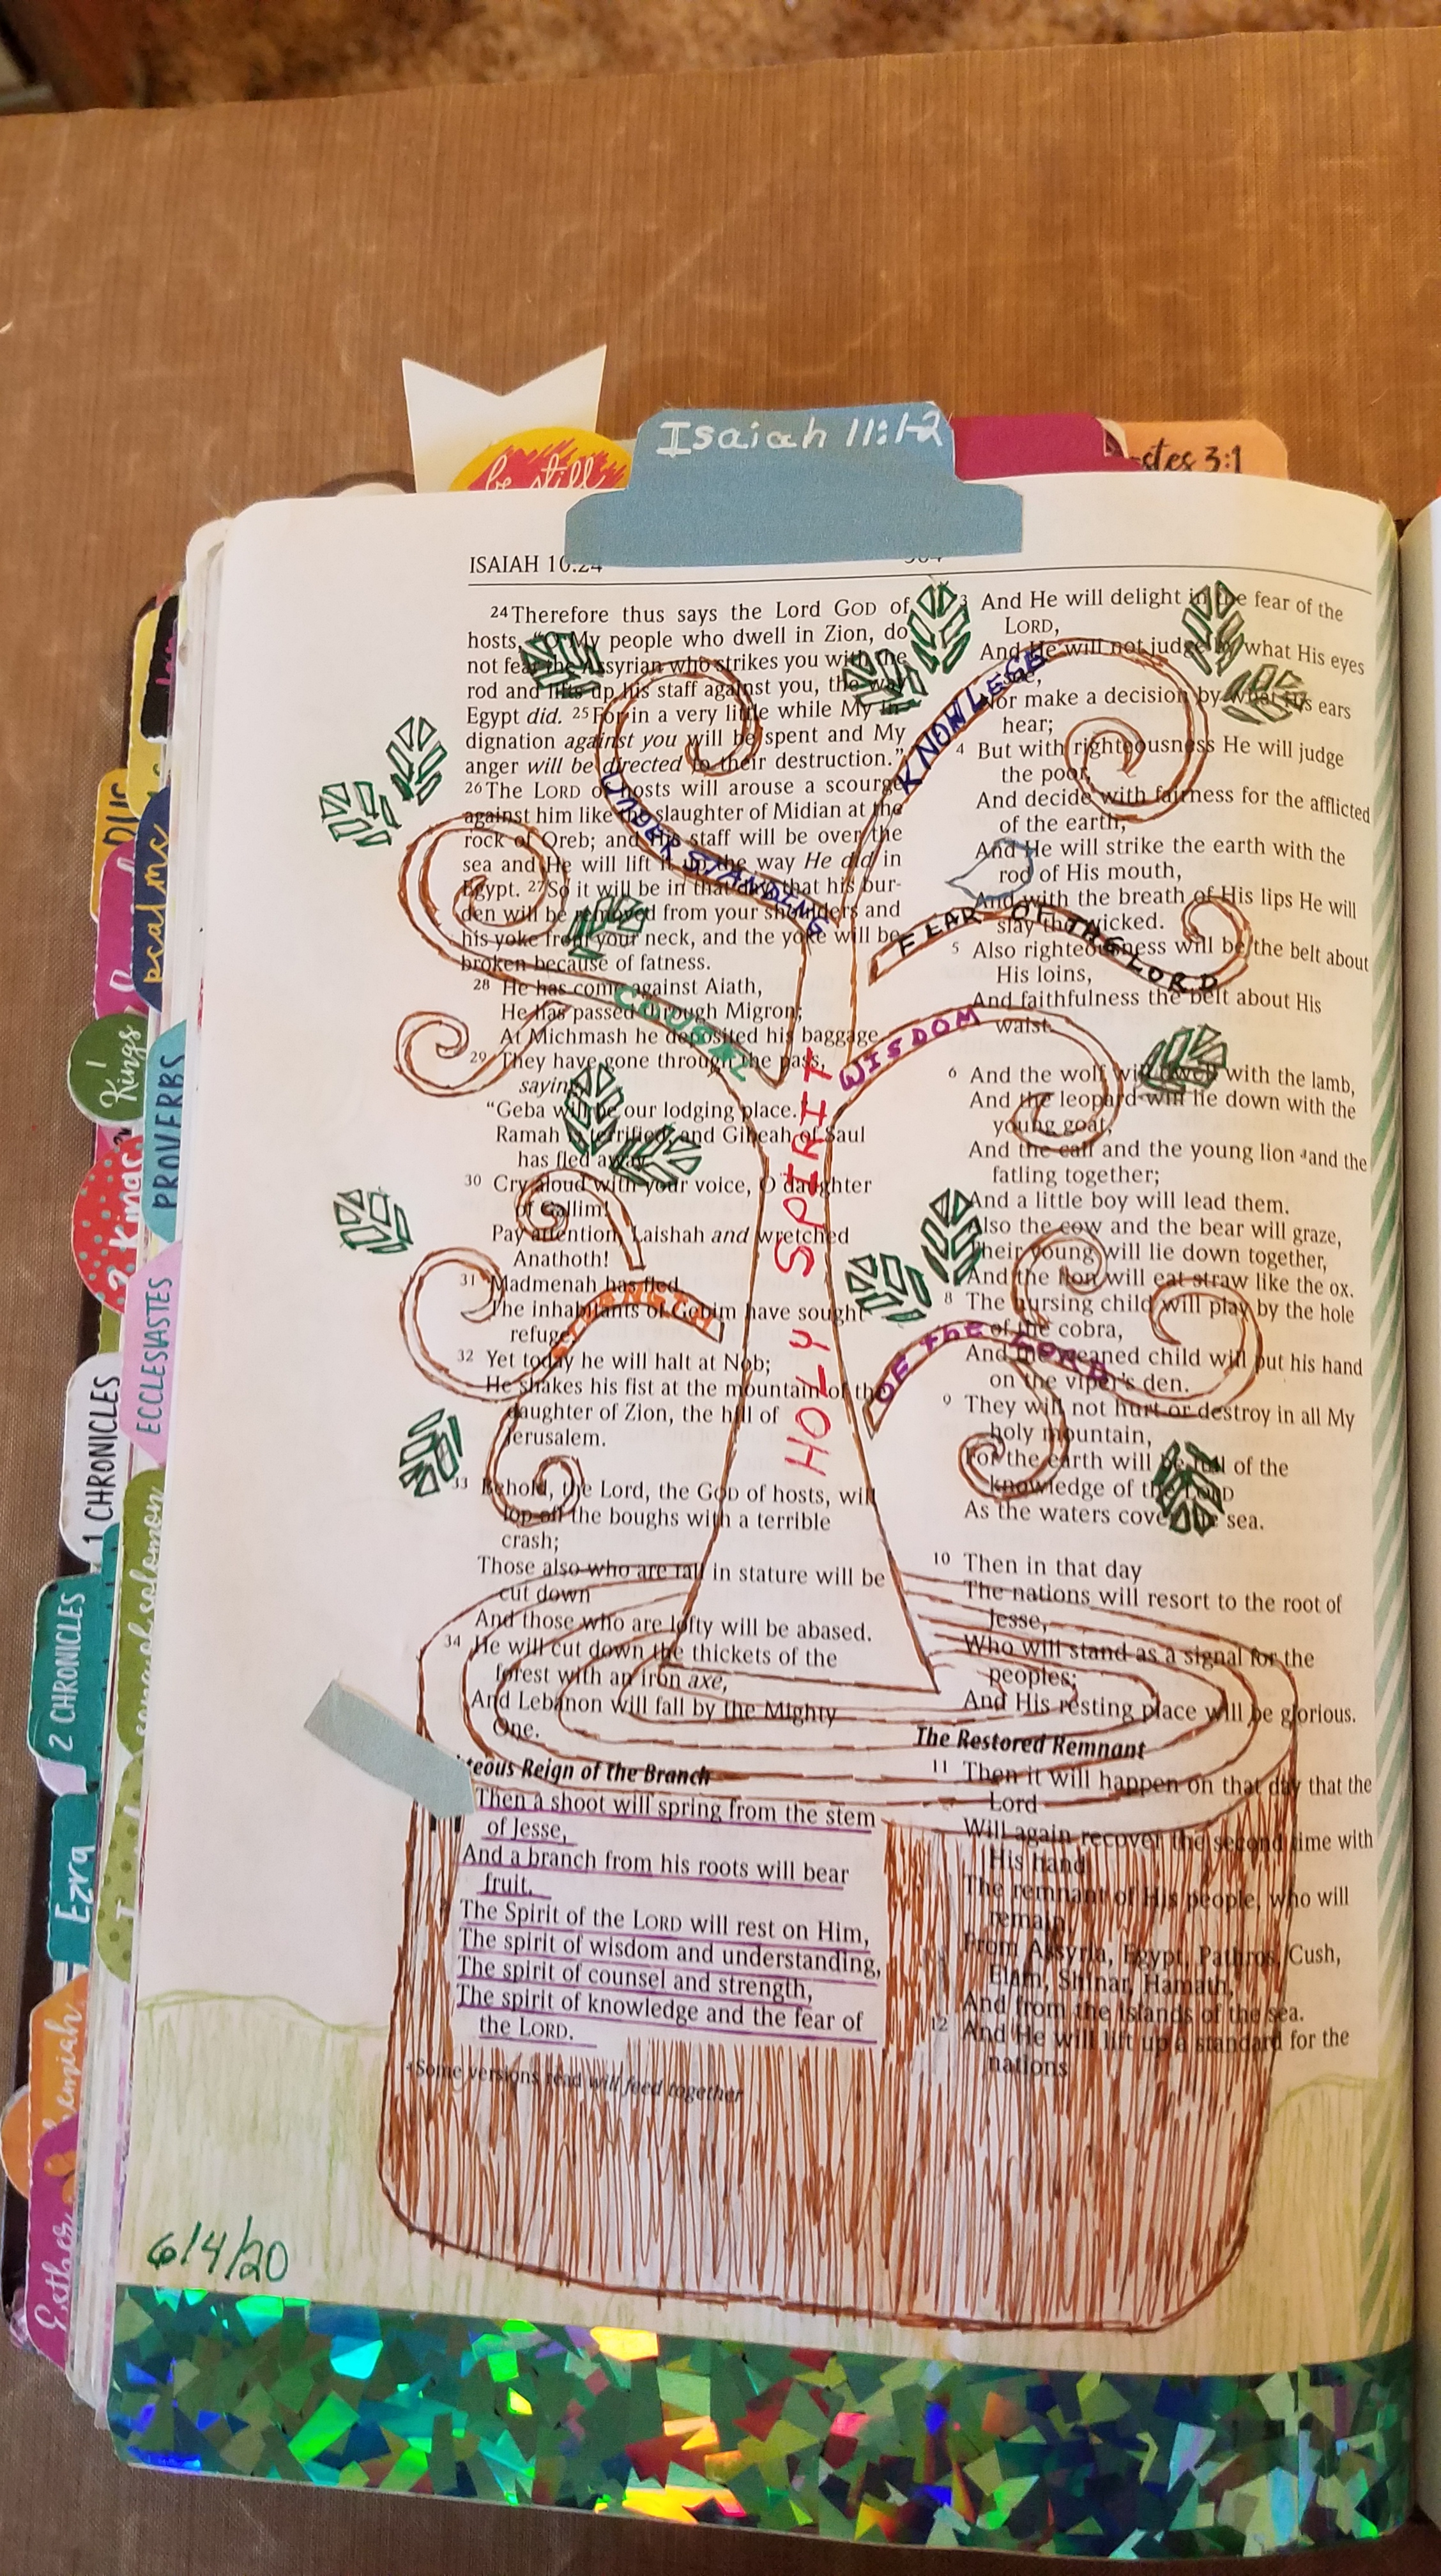 Isaiah 11:1-2
be still
stes 3:1
ISAIAH 10:24
24 Therefore thus says the Lord GOD of
hosts, "O My people who dwell in Zion, do
not fear the Assyrian who strikes you with the
rod and lifts up his staff against you, the way
Egypt did. 25 For in a very little while My in-
dignation against you will be spent and My
anger will be directed to their destruction."
26 The LORD of hosts will arouse a scourge
against him like the slaughter of Midian at the
rock of Oreb; and His staff will be over the
sea and He will lift it up the way He did in
Egypt. 27 So it will be in that day, that his bur-
den will be removed from your shoulders and
his yoke from your neck, and the yoke will be
broken because of fatness.
28 He has come against Aiath,
He has passed through Migron;
At Michmash he deposited his baggage.
29 They have gone through the pass,
saying,
"Geba will be our lodging place."
Ramah is terrified, and Gibeah of Saul
has fled away.
30 Cry aloud with your voice, O daughter
of Gallim!
Pay attention, Laishah and wretched
Anathoth!
31 Madmenah has fled.
The inhabitants of Gebim have sought
refuge.
32 Yet today he will halt at Nob;
He shakes his fist at the mountain of the
daughter of Zion, the hill of
Jerusalem.
33 Behold, the Lord, the GOD of hosts, will
lop off the boughs with a terrible
crash;
Those also who are tall in stature will be
cut down
And those who are lofty will be abased.
34 He will cut down the thickets of the
forest with an iron axe,
And Lebanon will fall by the Mighty
One.
teous Reign of the Branch
Then a shoot will spring from the stem
of Jesse,
And a branch from his roots will bear
fruit.
The Spirit of the LORD will rest on Him,
The spirit of wisdom and understanding,
The spirit of counsel and strength,
The spirit of knowledge and the fear of
the LORD.
a Some versions read will feed together
3 And He will delight in the fear of the
LORD,
And He will not judge by what His eyes
see,
Nor make a decision by what His ears
hear;
4 But with righteousness He will judge
the poor,
And decide with fairness for the afflicted
of the earth;
And He will strike the earth with the
rod of His mouth,
And with the breath of His lips He will
slay the wicked.
5 Also righteousness will be the belt about
His loins,
And faithfulness the belt about His
waist.
6 And the wolf will dwell with the lamb,
And the leopard will lie down with the
young goat,
And the calf and the young lion a and the
fatling together;
And a little boy will lead them.
Also the cow and the bear will graze,
Their young will lie down together,
And the lion will eat straw like the ox.
8 The nursing child will play by the hole
of the cobra,
And the weaned child will put his hand
on the viper's den.
9 They will not hurt or destroy in all My
holy mountain,
For the earth will be full of the
knowledge of the LORD
As the waters cover the sea.
10 Then in that day
The nations will resort to the root of
Jesse,
Who will stand as a signal for the
peoples;
And His resting place will be glorious.
The Restored Remnant
11 Then it will happen on that day that the
Lord
Will again recover the second time with
His hand
The remnant of His people, who will
remain,
From Assyria, Egypt, Pathros, Cush,
Elam, Shinar, Hamath,
And from the islands of the sea.
12 And He will lift up a standard for the
nations
UNDERSTANDING
KNOWLEGE
FEAR OF THE LORD
COUSEL
WISDOM
HOLY SPIRIT
OF the LORD
6/4/20
psalms
1 Kings
PROVERBS
2 Kings
ECCLESIASTES
1 CHRONICLES
song of solomon
2 CHRONICLES
Ezra
Esther